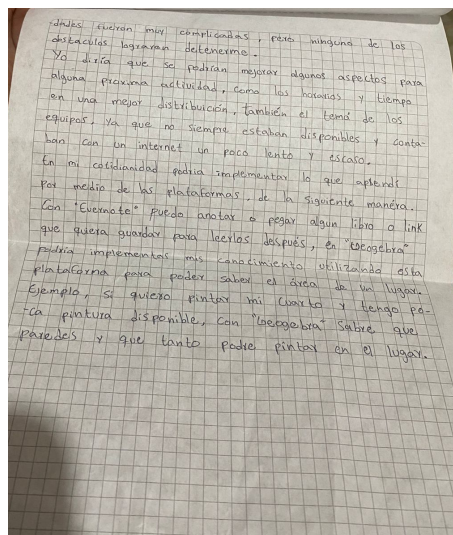 -dades fueran muy complicadas, pero ninguno de los
obstaculos lograran detenerme.
Yo diria que se podrian mejorar algunos aspectos para
alguna proxima actividad, como los horarios y tiempo
en una mejor distribuición, también el tema de los
equipos, ya que no siempre estaban disponibles y conta-
ban con un internet un poco lento y escaso.
En mi cotidianidad podria implementar lo que aprendi
por medio de las plataformas, de la siguiente manera.
Con "Evernote" puedo anotar o pegar algun libro o link
que quiera guardar para leerlos después, en "Geogebra"
podria implementar mis conocimiento utilizando esta
plataforma para poder saber el área de un lugar.
Ejemplo, si quiero pintar mi cuarto y tengo po-
-ca pintura disponible, con "Geogebra" sabre que
paredes y que tanto podre pintar en el lugar.